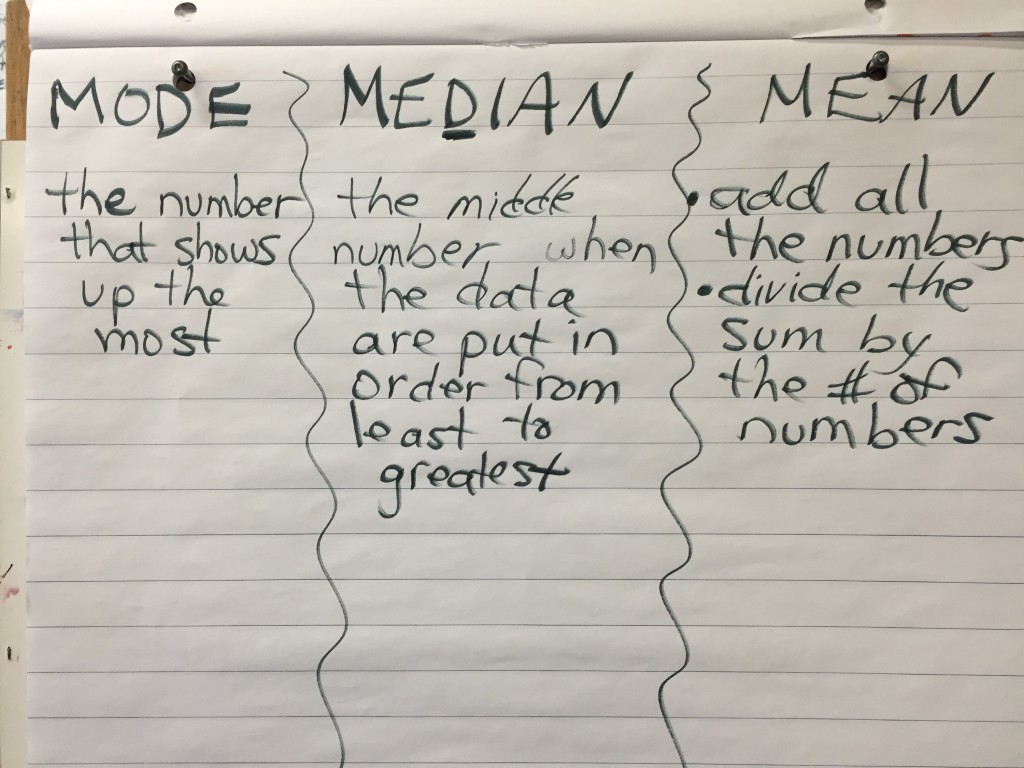 MODE
the number
that shows
up the
most
MEDIAN
the middle
number, when
the data
are put in
order from
least to
greatest
MEAN
• add all
the numbers
• divide the
sum by
the # of
numbers